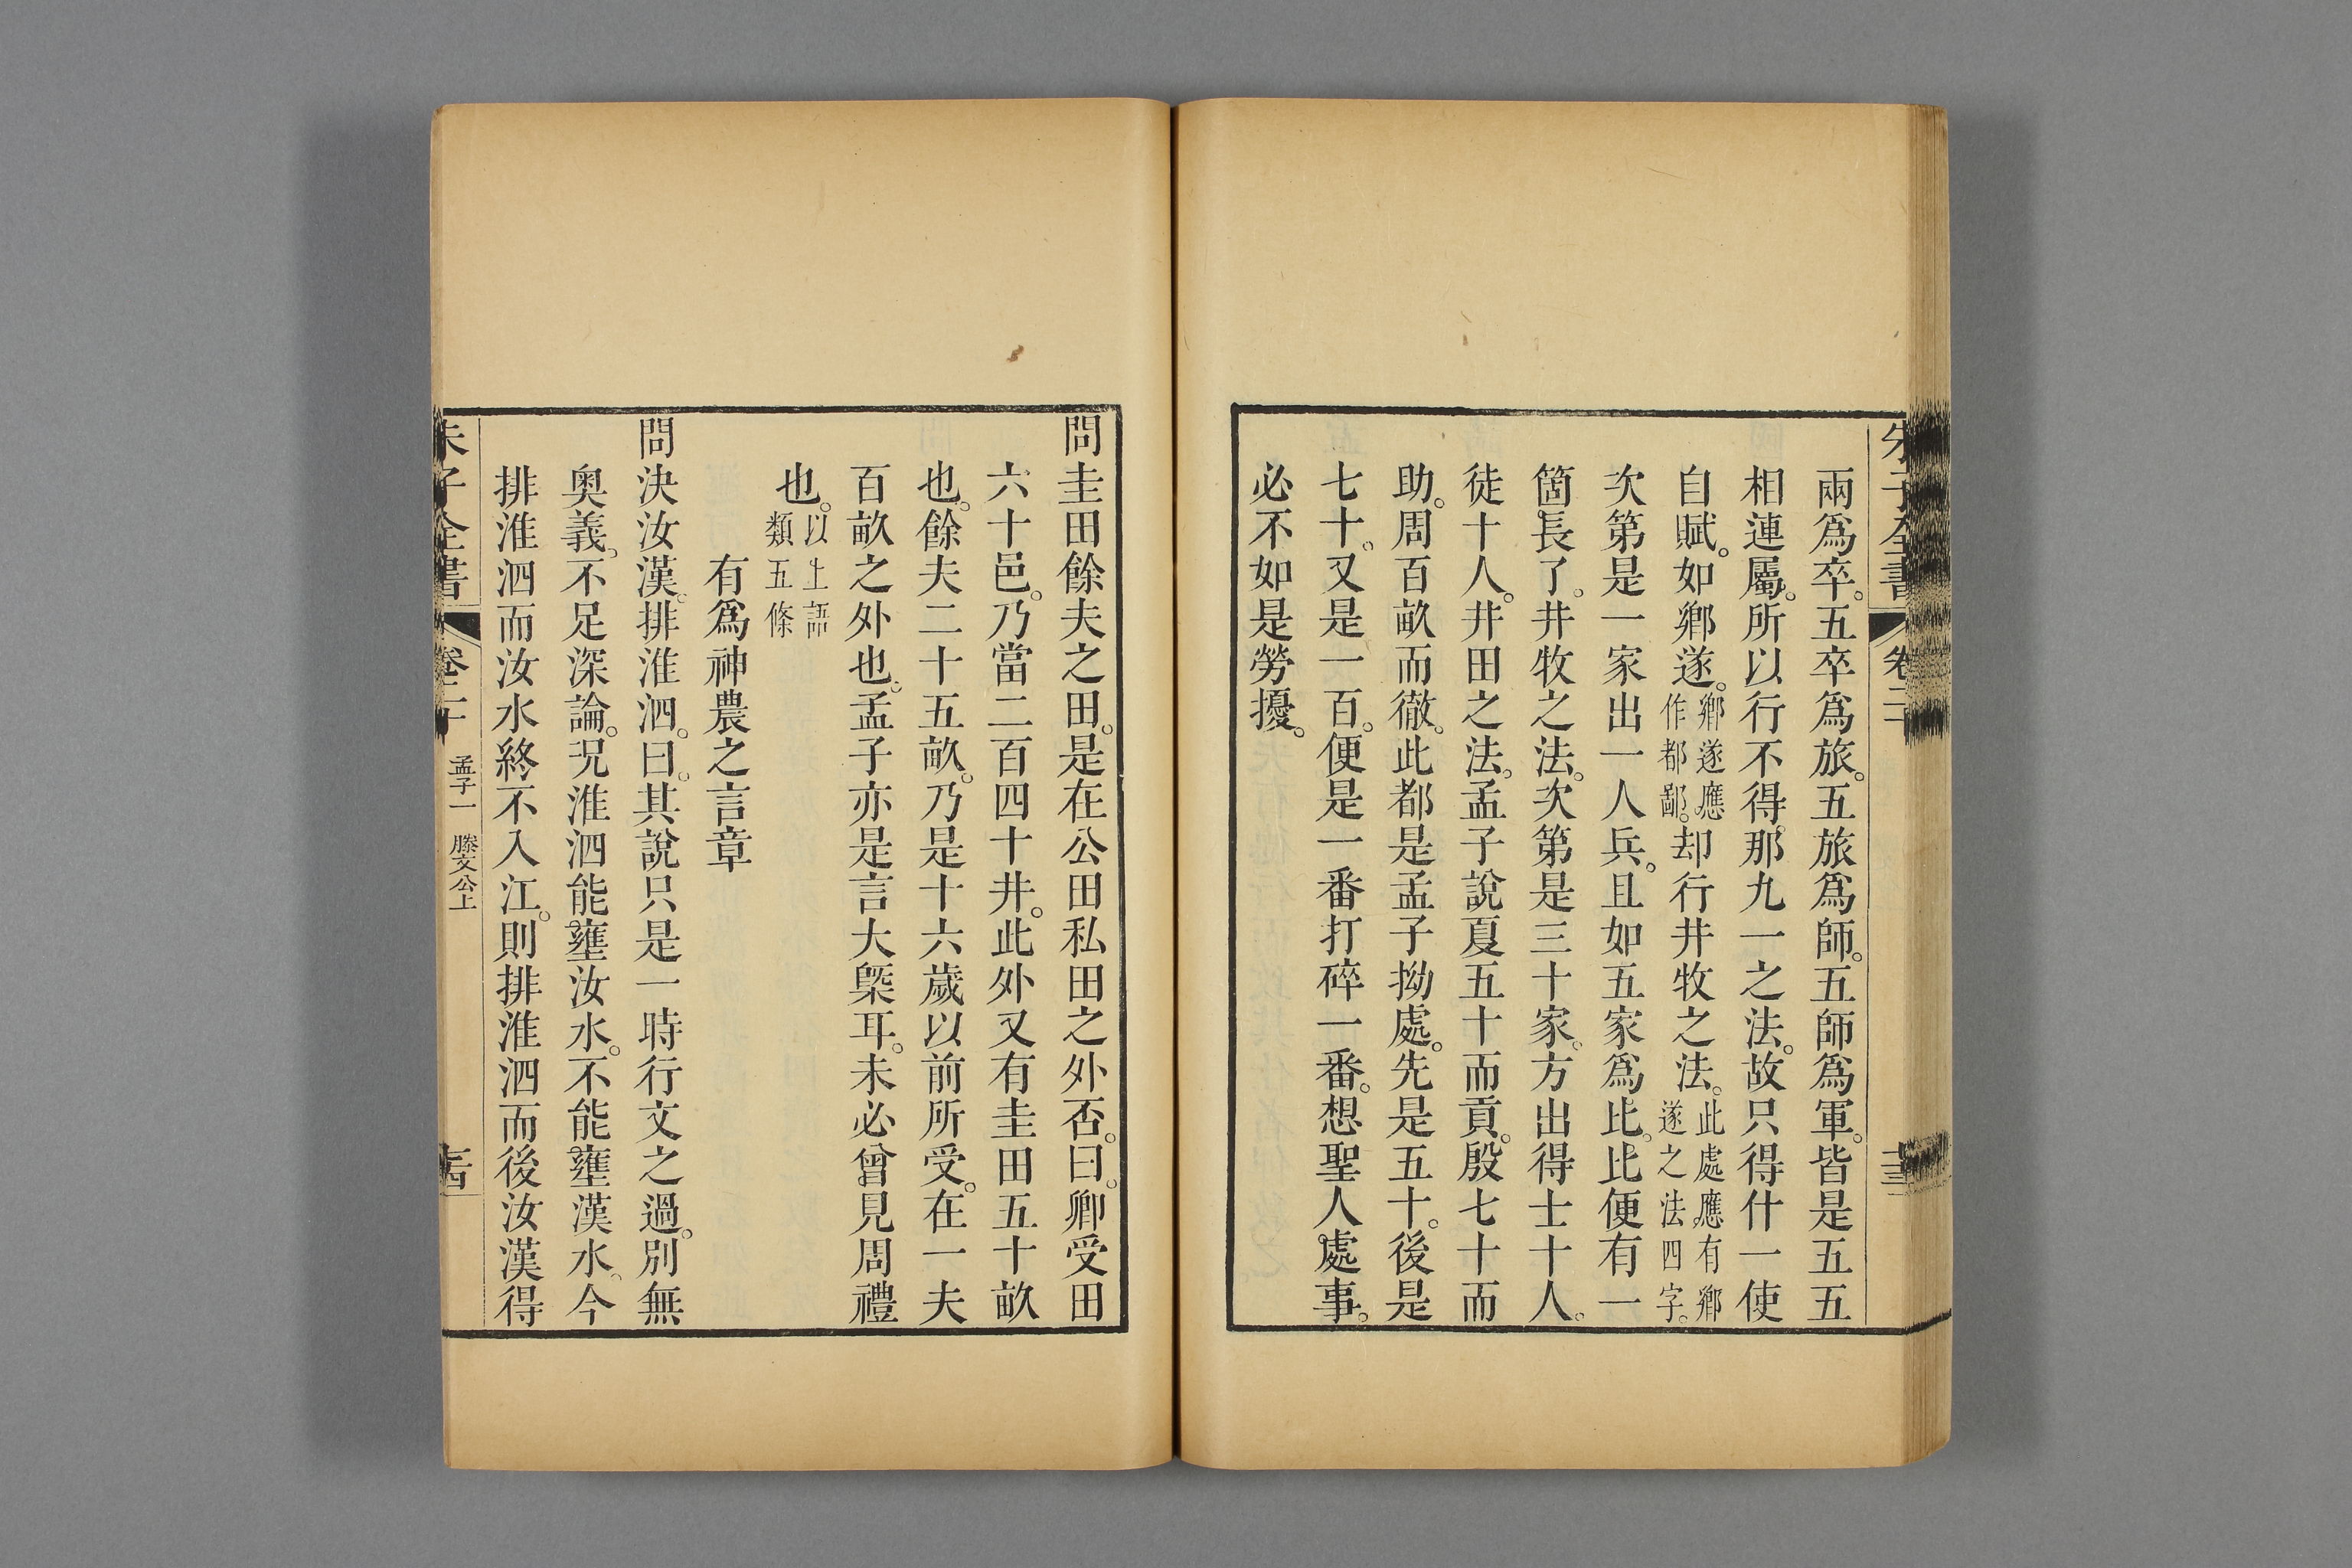 兩爲卒。五卒爲旅。五旅爲師。五師爲軍。皆是五五
相連屬。所以行不得。那九一之法。故只得什一使
自賦。如鄕遂。鄕遂應作都鄙。却行井牧之法。此處應有鄕遂之法。四字。
次第是一家出一人兵。且如五家爲比。比便有一
箇長了。井牧之法。次第是三十家。方出得士十人。
徒十人。井田之法。孟子說夏五十而貢。殷七十而
助。周百畝而徹。此都是孟子拗處。先是五十。後是
七十。又是一百。便是一番打碎一番。想聖人處事。
必不如是勞擾。
問圭田餘夫之田。是在公田私田之外否。曰。卿受田
六十邑。乃當二百四十井。此外又有圭田五十畝
也。餘夫二十五畝。乃是十六歲以前所受。在一夫
百畝之外也。孟子亦是言大槩耳。未必曾見周禮
也。以上語類五條
有爲神農之言章
問決汝漢。排淮泗。曰。其說只是一時行文之過。別無
奧義。不足深論。況淮泗能壅汝水。不能壅漢水。今
排淮泗而汝水終不入江。則排淮泗而後汝漢得
朱子全書 卷二十 孟子一 滕文公上